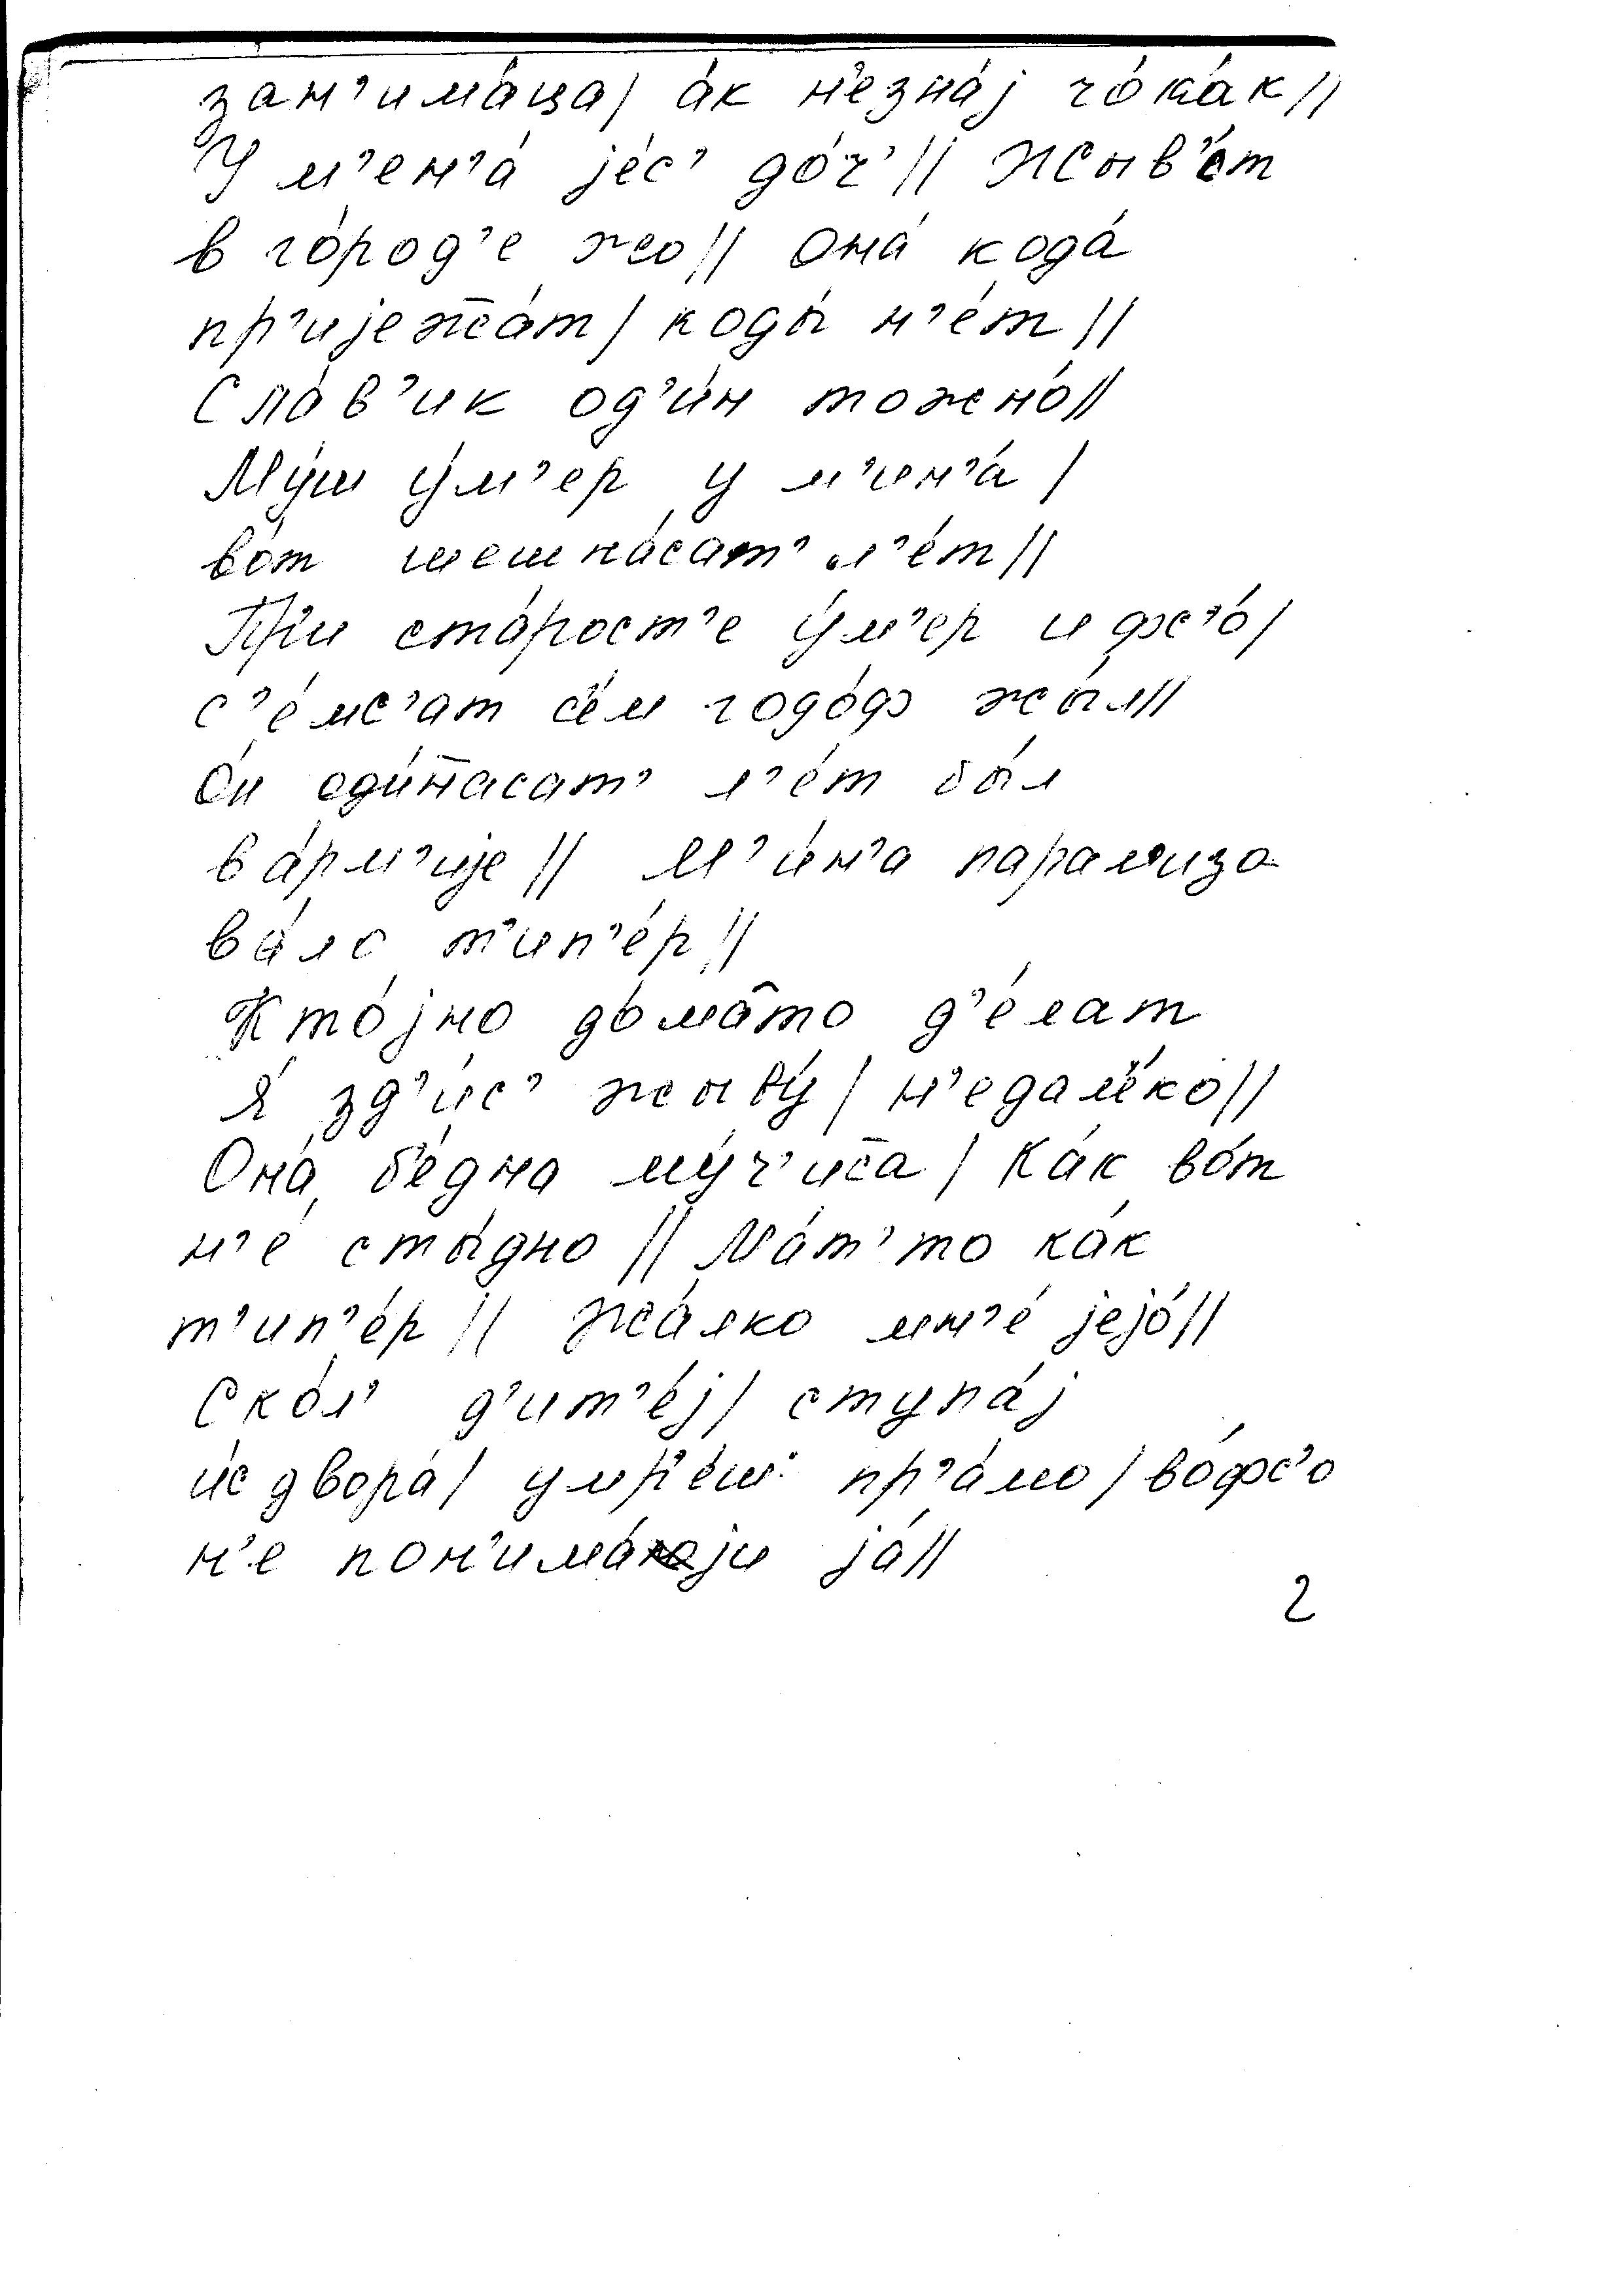 зан’има́ца/ а́к н’езна́ј чо́ка́к//
У м’ен’а́ је́с’ до́ч’// Жыв’о́т
в го́род’е жо// Она́ кода́
пр’ијеж̄а́т/ коды́ н’е́т//
Сла́в’ик од’и́н можно́//
Му́ш у́м’ер у м’ен’а́/
во́т шешна́сат’ л’е́т//
Пр’и ста́рост’е у́м’ер и фс’о́/
с’е́мс’ат с’е́м годо́ф жы́л//
О́н оди́н̄асат’ л’е́т бы́л
в а́рм’ије// М’и́н’а парал’изо
ва́ло т’ип’е́р//
Кто́јно до́ма̂то д’е́лат
Я́ зд’и́с’ жыву́/ н’едал’о́ко//
Она́ б’е́дна му́ч’ис̄а/ Ка́к во́т
н’е́ сты́дно// Ма́т’то ка́к
т’ип’е́р// Жа́лко мн’е́ јејо́//
Ско́л’ д’ит’е́ј/ ступа́ј
и́с двора́/ умр’е́ш’ пр’а́мо/ во́фс’о
н’е пон’има́ји ја́//
2